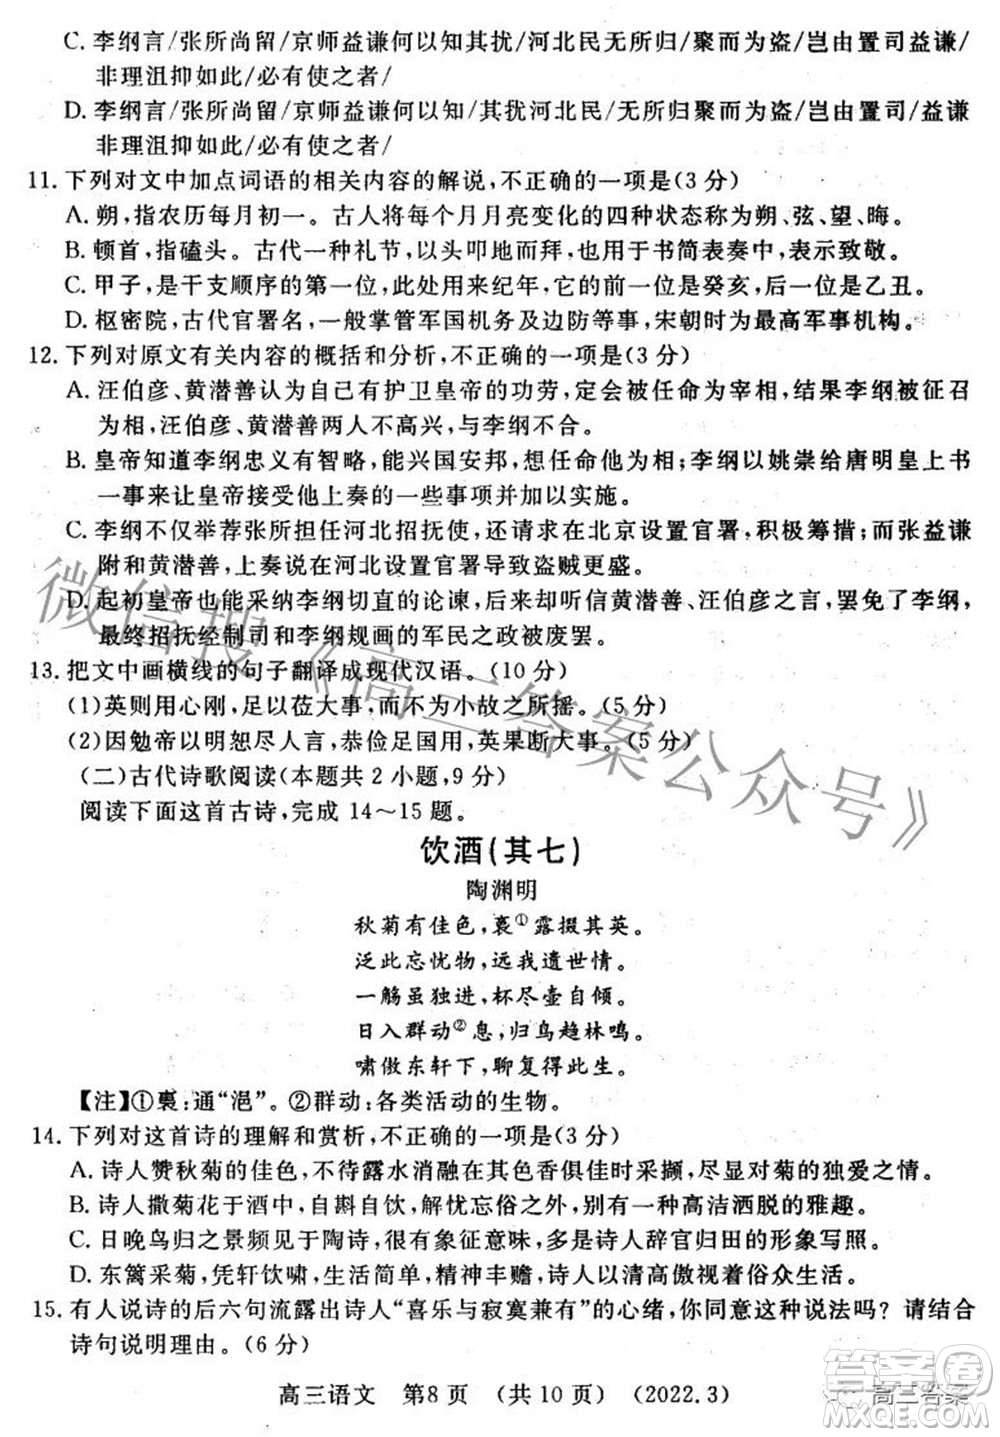 C. 李纲言/张所尚留/京师益谦何以知其扰/河北民无所归/聚而为盗/岂由置司益谦/
非理沮抑如此/必有使之者/
D. 李纲言/张所尚留/京师益谦何以知/其扰河北民/无所归聚而为盗/岂由置司/益谦
非理沮抑如此/必有使之者/
11. 下列对文中加点词语的相关内容的解说,不正确的一项是(3 分)
A. 朔,指农历每月初一。古人将每个月月亮变化的四种状态称为朔、弦、望、晦。
B. 顿首,指磕头。古代一种礼节,以头叩地而拜,也用于书简表奏中,表示致敬。
C. 甲子,是干支顺序的第一位,此处用来纪年,它的前一位是癸亥,后一位是乙丑。
D. 枢密院,古代官署名,一般掌管军国机务及边防等事,宋朝时为最高军事机构。
12. 下列对原文有关内容的概括和分析,不正确的一项是(3 分)
A. 汪伯彦、黄潜善认为自己有护卫皇帝的功劳,定会被任命为宰相,结果李纲被征召
为相,汪伯彦、黄潜善两人不高兴,与李纲不合。
B. 皇帝知道李纲忠义有智略,能兴国安邦,想要任用他;李纲以姚崇给唐明皇上书
一事来让皇帝接受他上奏的一些事项并加以实施。
C. 李纲不仅举荐张所担任河北招抚使,还请求在北京设置官署,积极筹措;而张益谦
附和黄潜善,上奏说在河北设置官署导致盗贼更盛。
D. 起初皇帝也能采纳李纲切直的论谏,后来却听信黄潜善、汪伯彦之言,罢免了李纲,
最终招抚经制司和李纲规画的军民之政被废罢。
13. 把文中画横线的句子翻译成现代汉语。(10 分)
(1)英则用心刚,足以莅大事,而不为小故之所摇。(5 分)
(2)因勉帝以明恕尽人言,恭俭足国用,英果断大事。(5 分)
(二)古代诗歌阅读(本题共 2 小题,9 分)
阅读下面这首古诗,完成 14~15 题。
饮酒(其七)
陶渊明
秋菊有佳色,裛①露掇其英。
泛此忘忧物,远我遗世情。
一觞虽独进,杯尽壶自倾。
日入群动②息,归鸟趋林鸣。
啸傲东轩下,聊复得此生。
【注】①裛:通“浥”。②群动:各类活动的生物。
14. 下列对这首诗的理解和赏析,不正确的一项是(3 分)
A. 诗人赞秋菊的佳色,不待露水消融在其色香俱佳时采撷,尽显对菊的热爱之情。
B. 诗人撒菊花于酒中,自斟自饮,既忘忧又忘俗,别有一种高洁洒脱的雅趣。
C. 日晚鸟归之景频见于陶诗,很有象征意味,多为诗人辞官归田的形象写照。
D. 东篱采菊,凭轩饮啸,生活简单,精神丰赡,诗人以清高傲视大众生活。
15. 有人说诗的后六句流露出诗人“喜乐与寂寞兼有”的心绪,你同意这种说法吗?请结合
诗句说明理由。(6 分)
高三语文 第8页 (共10页) (2022.3)
微信搜《高三答案公众号》
答案圈
MXQE.COM
高三答案